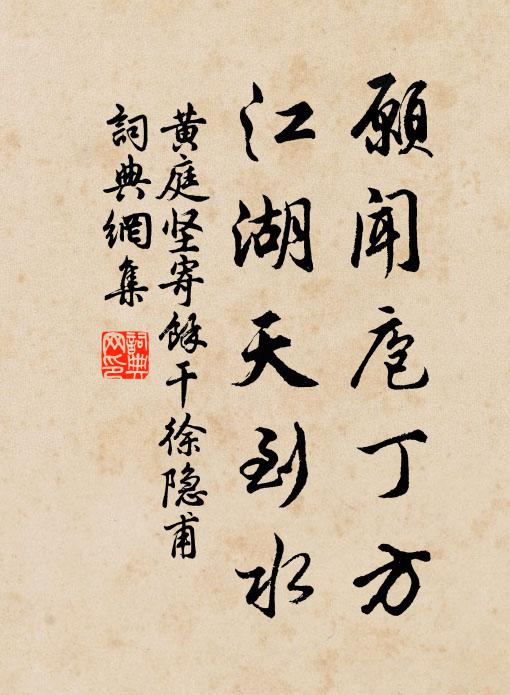 願聞庖丁方
江湖天到水
黃庭坚寄馀干徐隐甫
詞典網集
詞典
网印